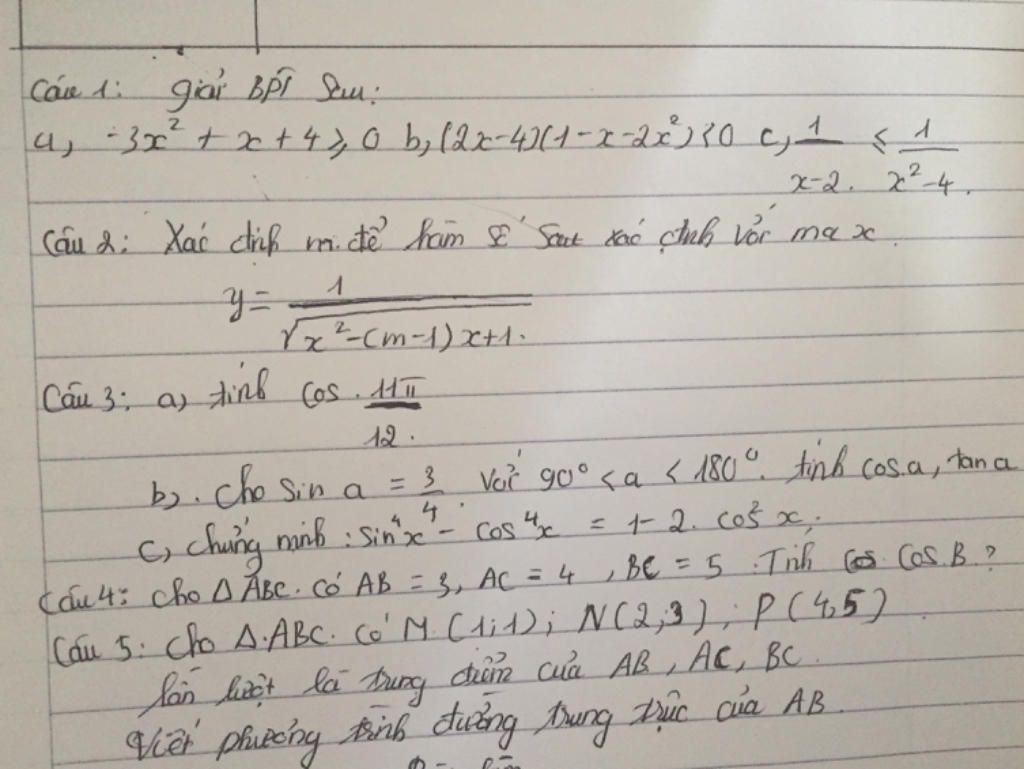 Câu 1: giải BPT sau:
a, -3x² + x + 4 ≥ 0 b, (2x-4)(1-x-2x²) < 0 c, 1/(x-2) ≤ 1/(x²-4)
Câu 2: Xác định m để hàm số sau xác định với mọi x.
y = 1/√(x²-(m-1)x+1)
Câu 3: a) tính cos 11π/12
b). Cho sin a = 3/4 với 90° < a < 180°. tính cos a, tan a
c, chứng minh: sin⁴x - cos⁴x = 1-2.cos²x;
Câu 4: cho Δ ABC. có AB = 3, AC = 4, BC = 5. Tính cos B?
Câu 5: cho Δ.ABC. có M (1;1); N(2;3); P(4,5)
lần lượt là trung điểm của AB, AC, BC.
Viết phương trình đường trung trực của AB.